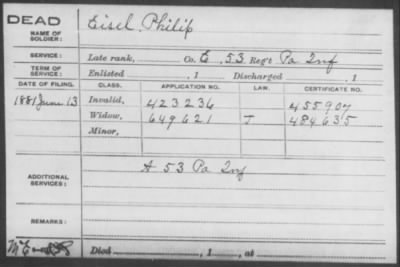 DEAD
NAME OF SOLDIER: Eisel, Philip
SERVICE: Late rank, Co. E, 53 Reg't Pa Inf
TERM OF SERVICE: Enlisted , 1 Discharged , 1
DATE OF FILING. CLASS. APPLICATION NO. LAW. CERTIFICATE NO.
1881 June 13 Invalid, 423236 455907
Widow, 649621 J 484635
Minor,
ADDITIONAL SERVICES: A 53 Pa Inf
REMARKS:
Died , 1 , at